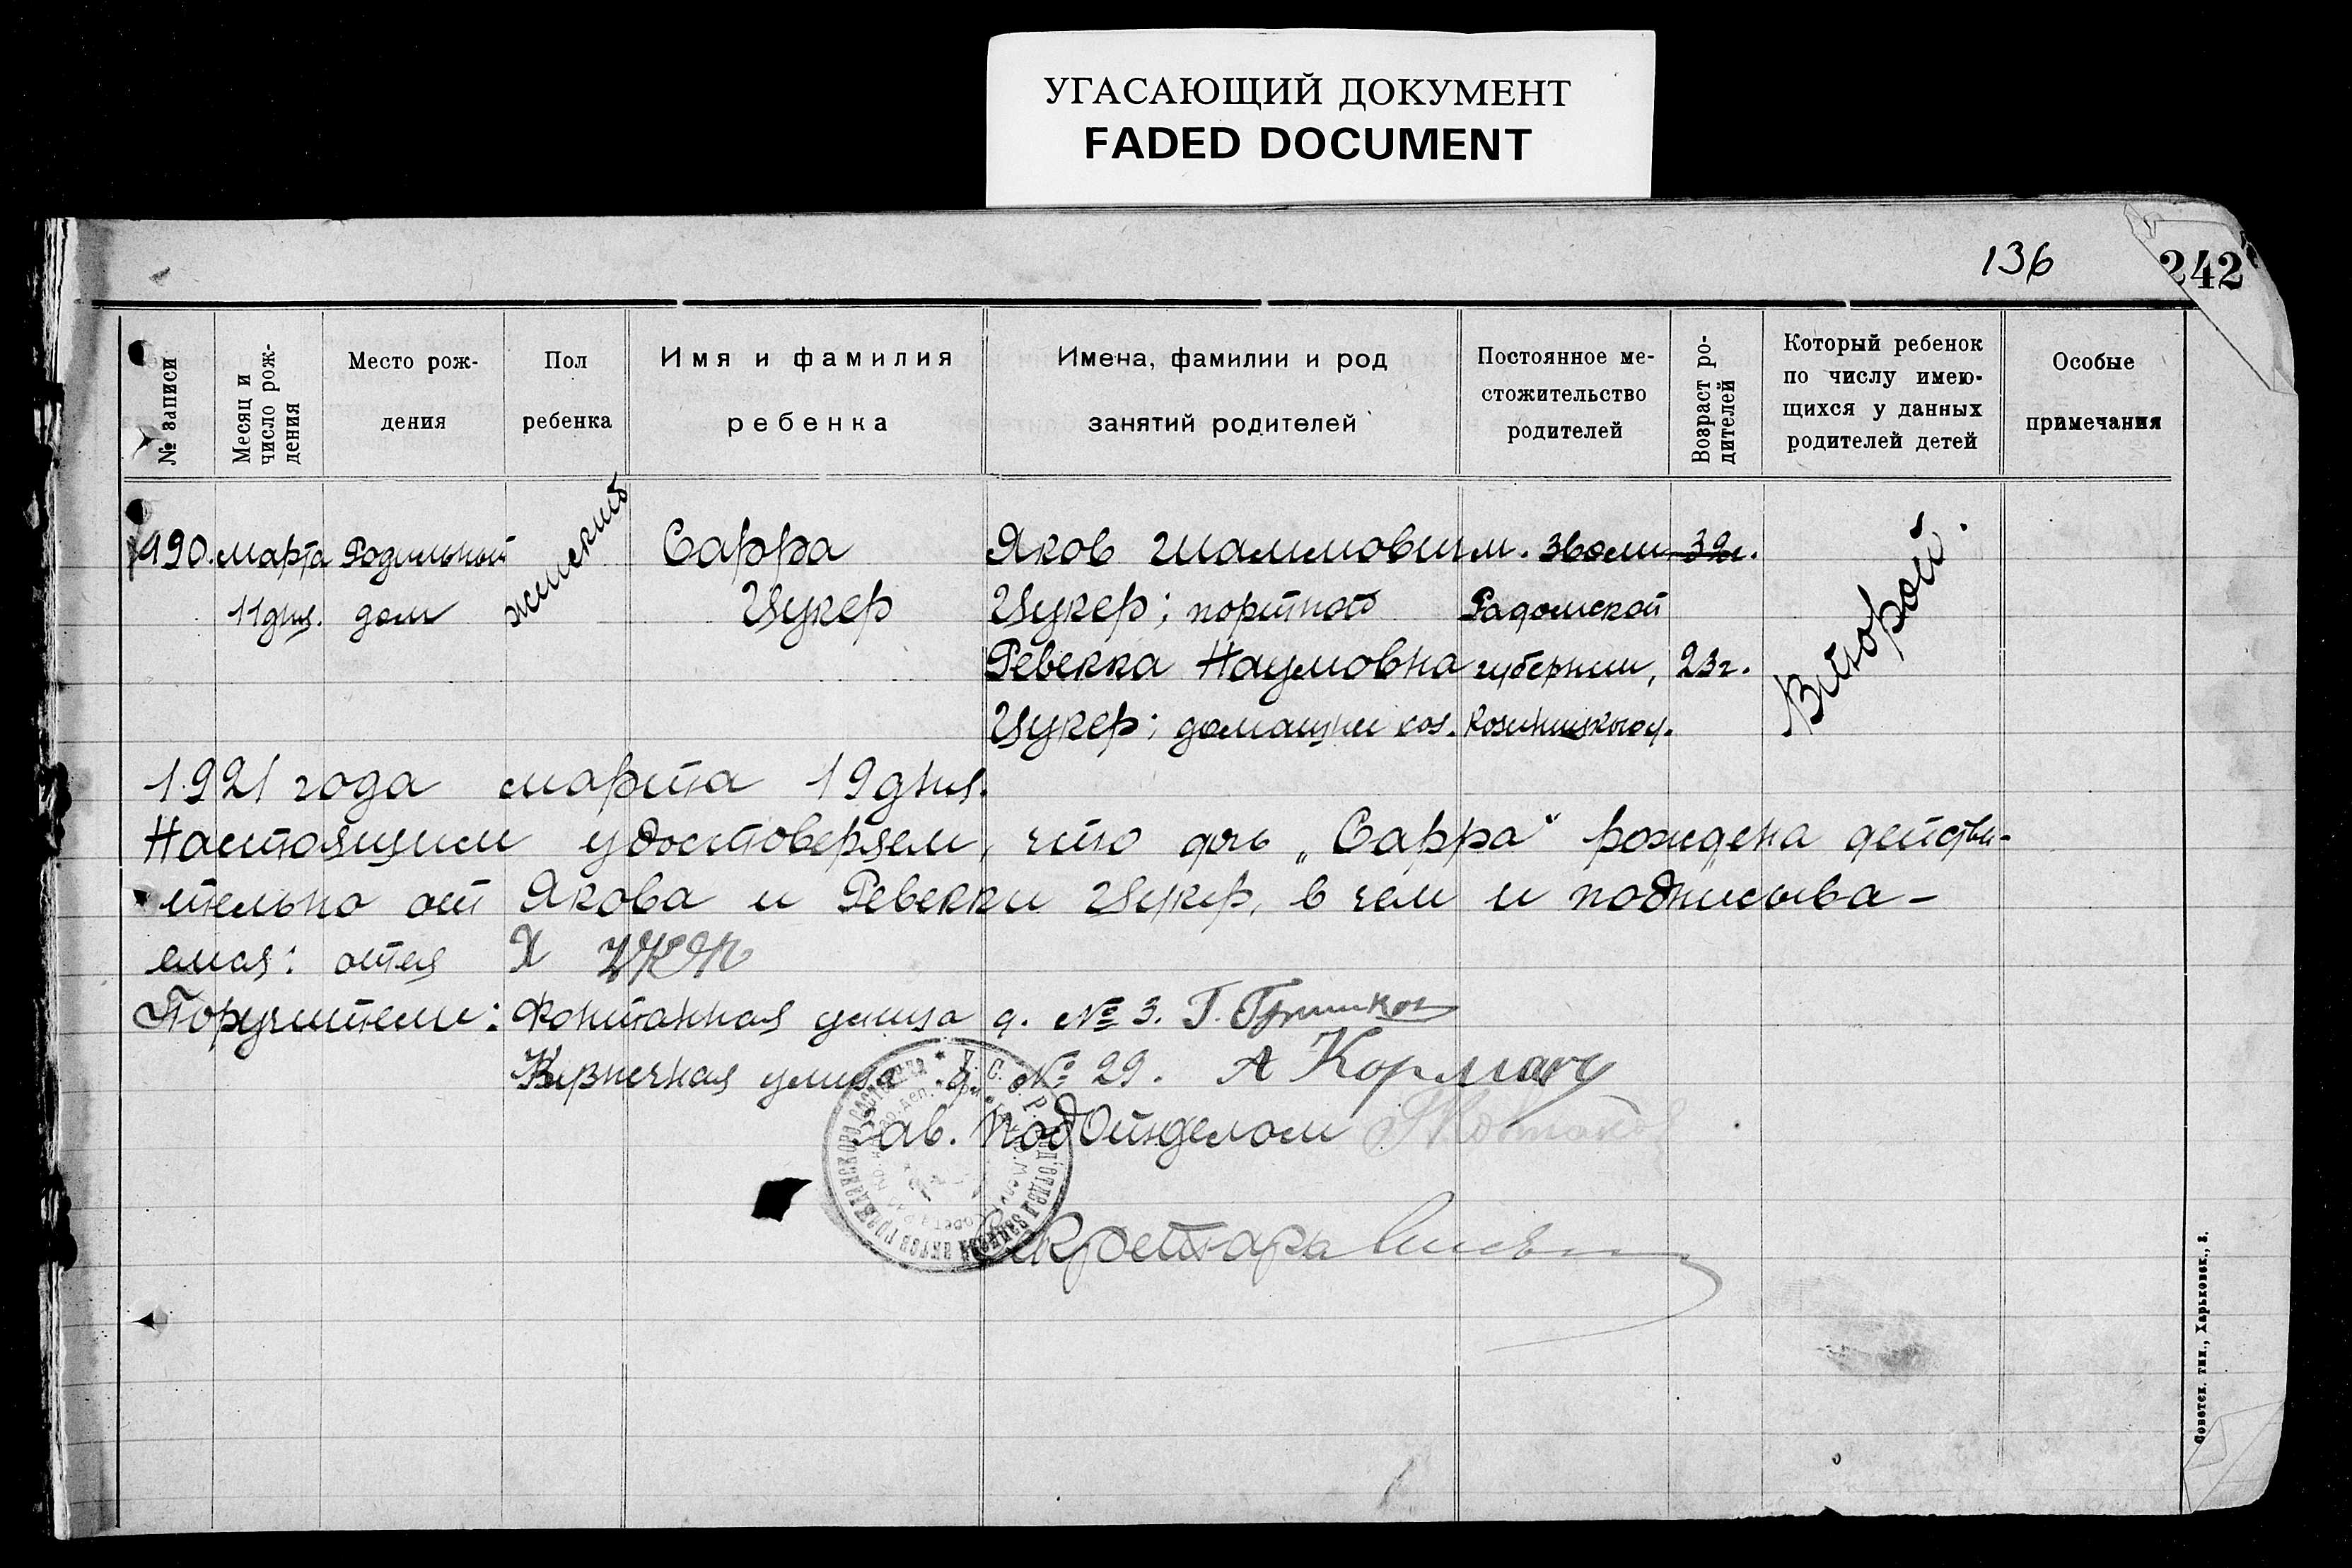 УГАСАЮЩИЙ ДОКУМЕНТ
FADED DOCUMENT
136
242
№ записи
Месяц и число рож-дения
Место рож-дения
Пол ребенка
Имя и фамилия ребенка
Имена, фамилии и род занятий родителей
Постоянное ме-стожительство родителей
Возраст ро-дителей
Который ребенок по числу имею-щихся у данных родителей детей
Особые примечания
490. марта Родильный женский Сарра Яков м. 32г. Второй.
11 дня. дом Цукер Цукер; портной Радомской
Ревекка Наумовна губернии, 23г.
Цукер; домашн. хоз.
1921 года марта 19 дня.
Настоящим удостоверяем, что дочь „Сарра" рождена действи-
тельно от Якова и Ревекки Цукер, в чем и подписыва-
емся: отец
Поручители: Фонтанная улица д. № 3. Г.
Кузнечная улица д. № 29. А
Зав. Подотделом
Секретарь
Советск. тип., Харьковск., 3.